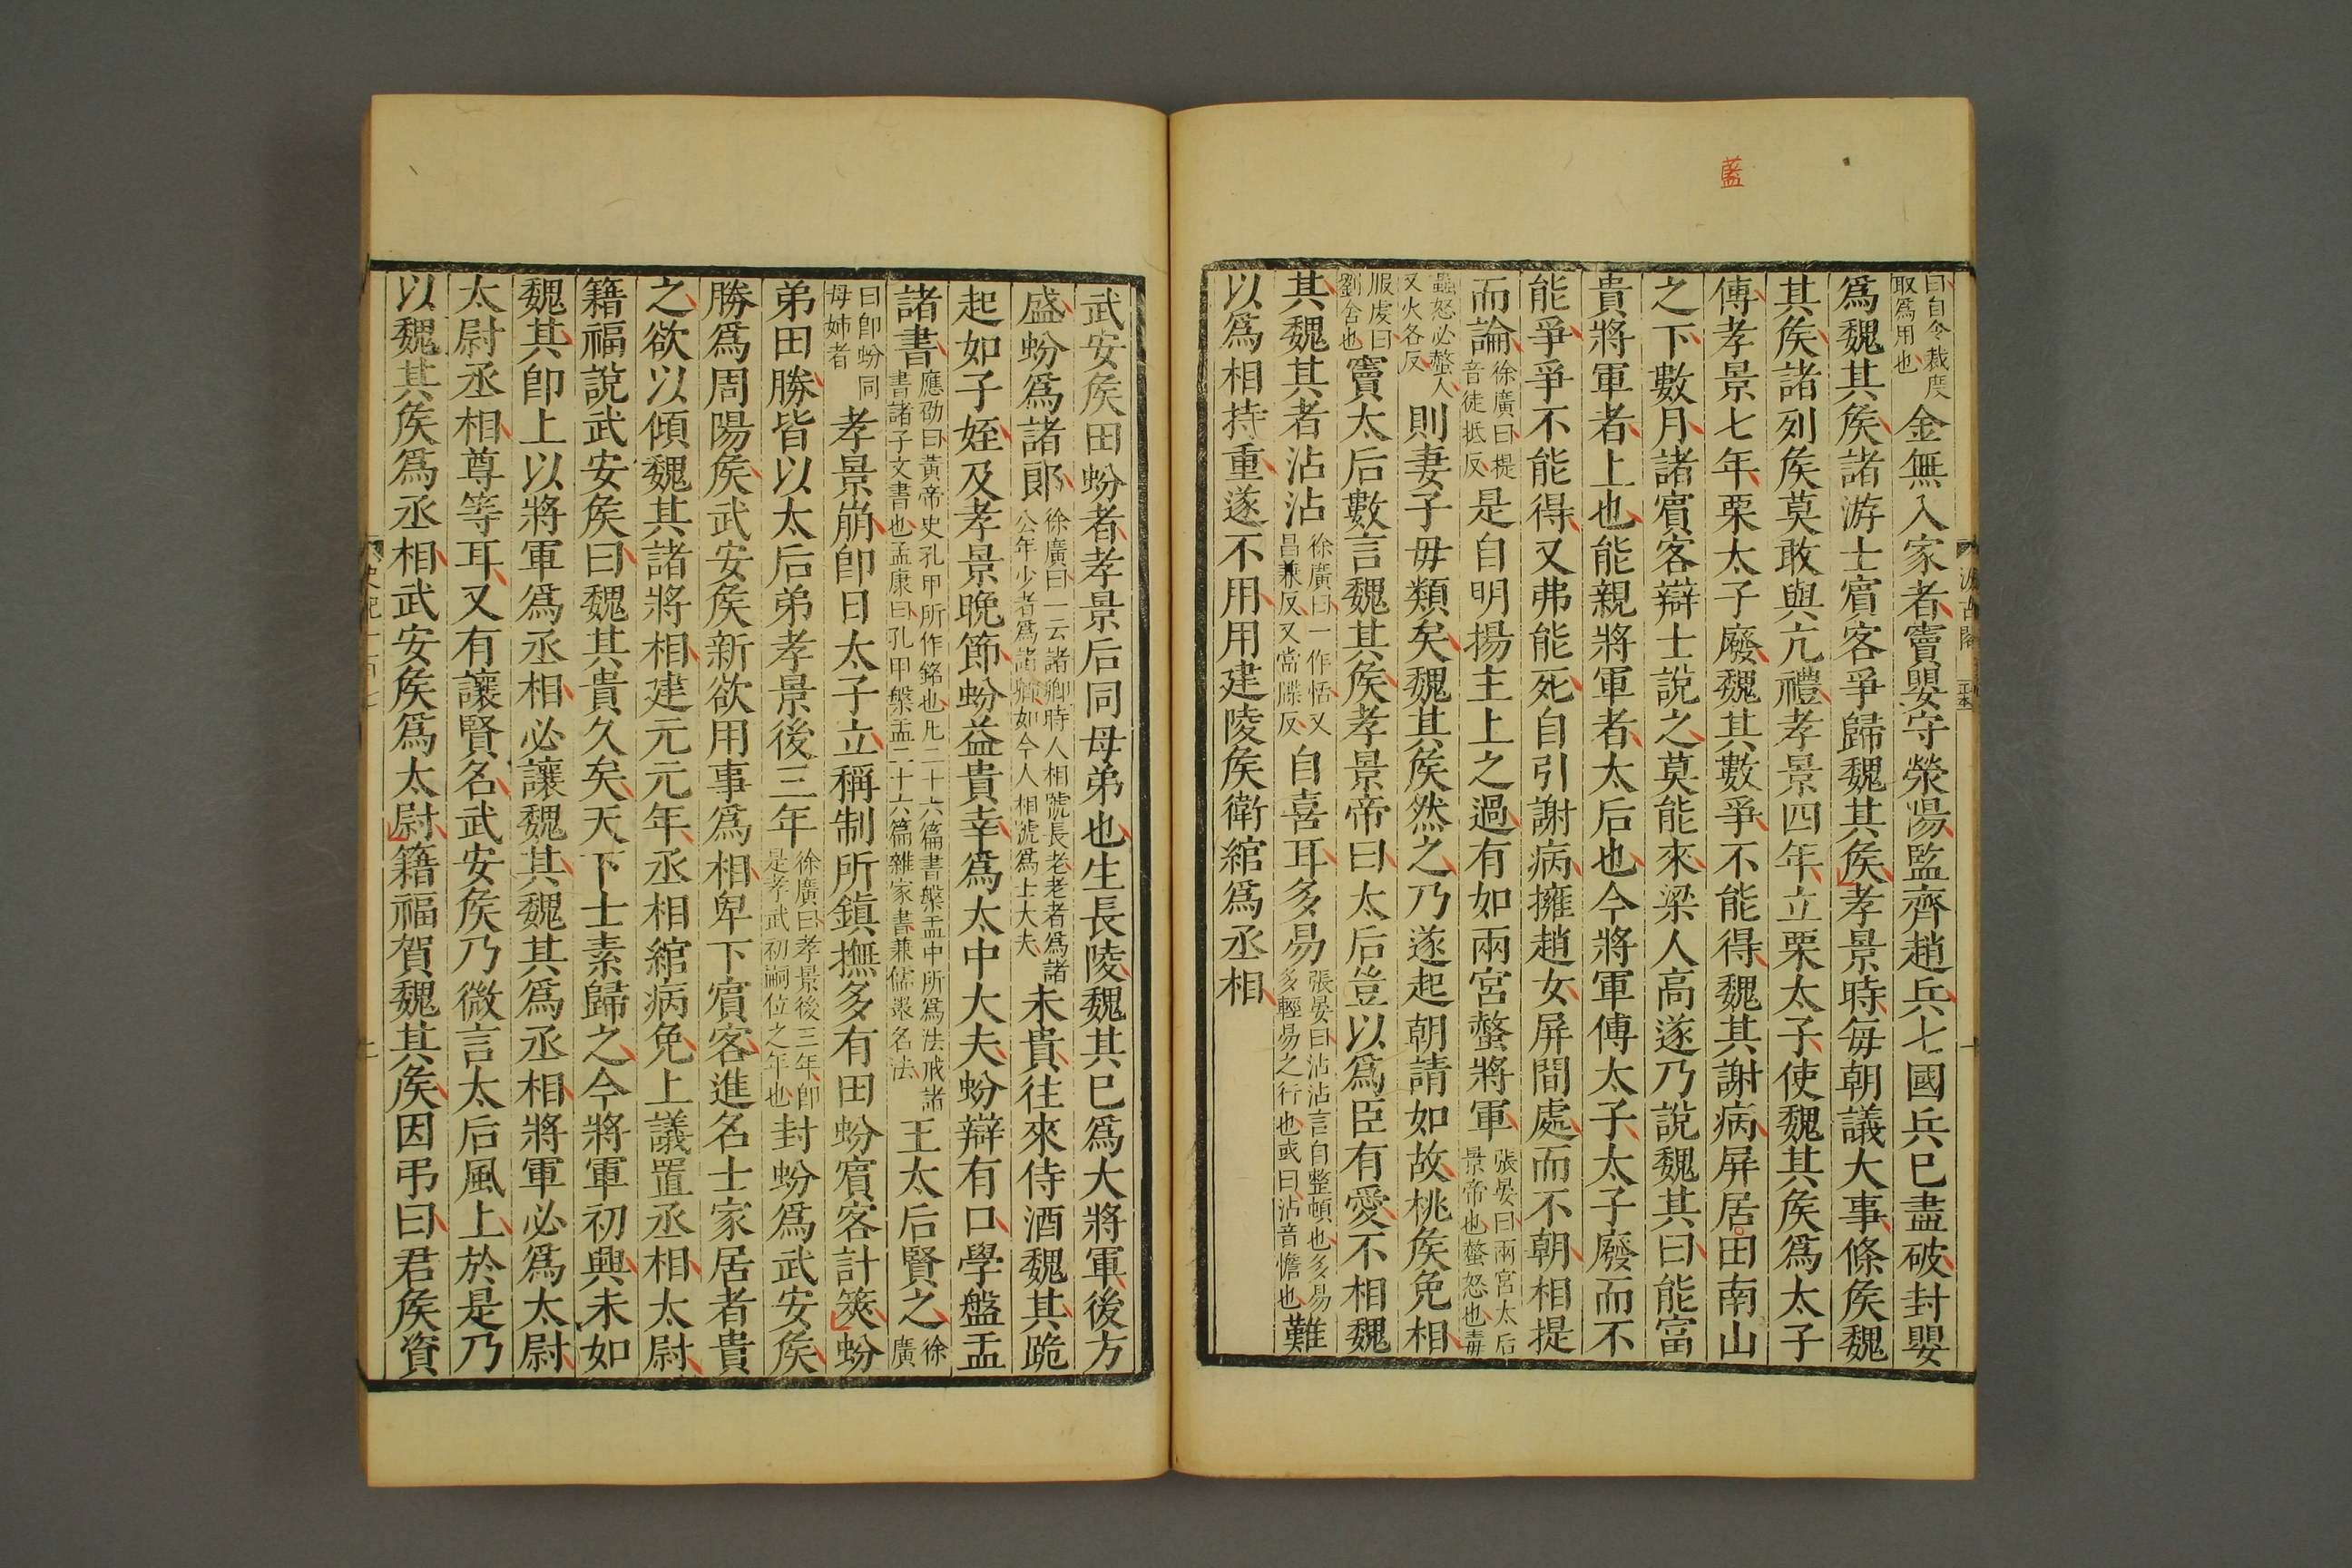 藍
曰自令裁度取爲用也金無入家者竇嬰守滎陽監齊趙兵七國兵已盡破封嬰
爲魏其矦諸游士賓客爭歸魏其矦孝景時每朝議大事條矦魏
其矦諸列矦莫敢與亢禮孝景四年立栗太子使魏其矦爲太子
傅孝景七年栗太子廢魏其數爭不能得魏其謝病屏居田南山
之下數月諸賓客辯士說之莫能來梁人高遂乃說魏其曰能富
貴將軍者上也能親將軍者太后也今將軍傅太子太子廢而不
能爭爭不能得又弗能死自引謝病擁趙女屏間處而不朝相提
而論徐廣曰提音徒抵反是自明揚主上之過有如兩宮螫將軍張晏曰兩宮太后景帝也螫怒也毒
蟲怒必螫人又火各反則妻子毋類矣魏其矦然之乃遂起朝請如故桃矦免相
服虔曰劉舍也竇太后數言魏其矦孝景帝曰太后豈以爲臣有愛不相魏
其魏其者沾沾徐廣曰一作怗又昌兼反又當牒反自喜耳多易張晏曰沾沾言自整頓也多易多輕易之行也或曰沾音憺也難
以爲相持重遂不用用建陵矦衛綰爲丞相
汲古閣
正本
武安矦田蚡者孝景后同母弟也生長陵魏其已爲大將軍後方
盛蚡爲諸郎徐廣曰一云諸卿時人相號長老老者爲諸公年少者爲諸卿如今人相號爲士大夫未貴往來侍酒魏其跪
起如子姪及孝景晚節蚡益貴幸爲太中大夫蚡辯有口學盤盂
諸書應劭曰黃帝史孔甲所作銘也凡二十六篇書槃盂中所爲法戒諸書諸子文書也孟康曰孔甲槃盂二十六篇雜家書兼儒墨名法王太后賢之徐廣
曰卽蚡同母姊者孝景崩卽日太子立稱制所鎮撫多有田蚡賓客計筴蚡
弟田勝皆以太后弟孝景後三年徐廣曰孝景後三年卽是孝武初嗣位之年也封蚡爲武安矦
勝爲周陽矦武安矦新欲用事爲相卑下賓客進名士家居者貴
之欲以傾魏其諸將相建元元年丞相綰病免上議置丞相太尉
籍福說武安矦曰魏其貴久矣天下士素歸之今將軍初興未如
魏其卽上以將軍爲丞相必讓魏其魏其爲丞相將軍必爲太尉
太尉丞相尊等耳又有讓賢名武安矦乃微言太后風上於是乃
以魏其矦爲丞相武安矦爲太尉籍福賀魏其矦因弔曰君矦資